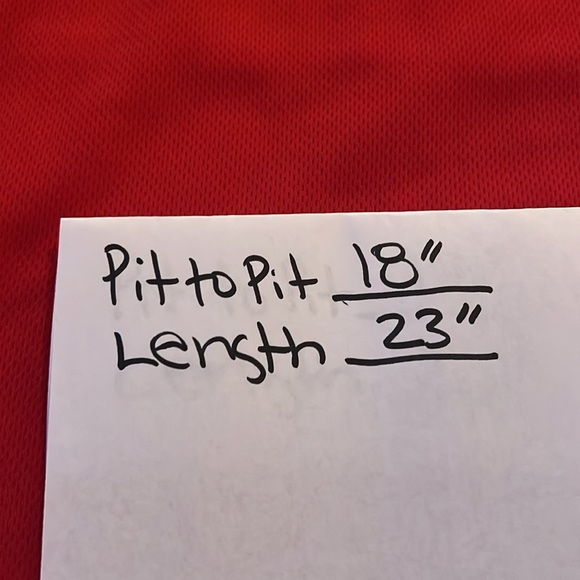 Pit to Pit 18"
Length 23"